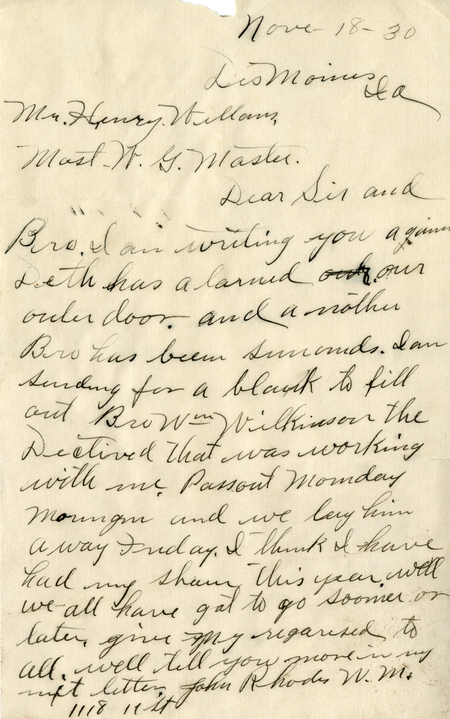 Nove-18-30
DesMoines
Ia
Mr. Henry. Willans,
Most. W. G. Master.
Dear Sir and
Bro. I am writing you againn
Deth has alarned our
outer door. and a nother
Bro has beem sumonds. I am
sending for a blank to fill
out Bro Wm Wilkinson the
Dectived that was working
with me. Passout Momday
Mornngn and we lay him
away Friday. I think I have
had my share this year. well
we all have got to go soomer or
later, give my regarised to
all. well tell you more in my
next letter. John Rhodes W. M.
1118 11 St